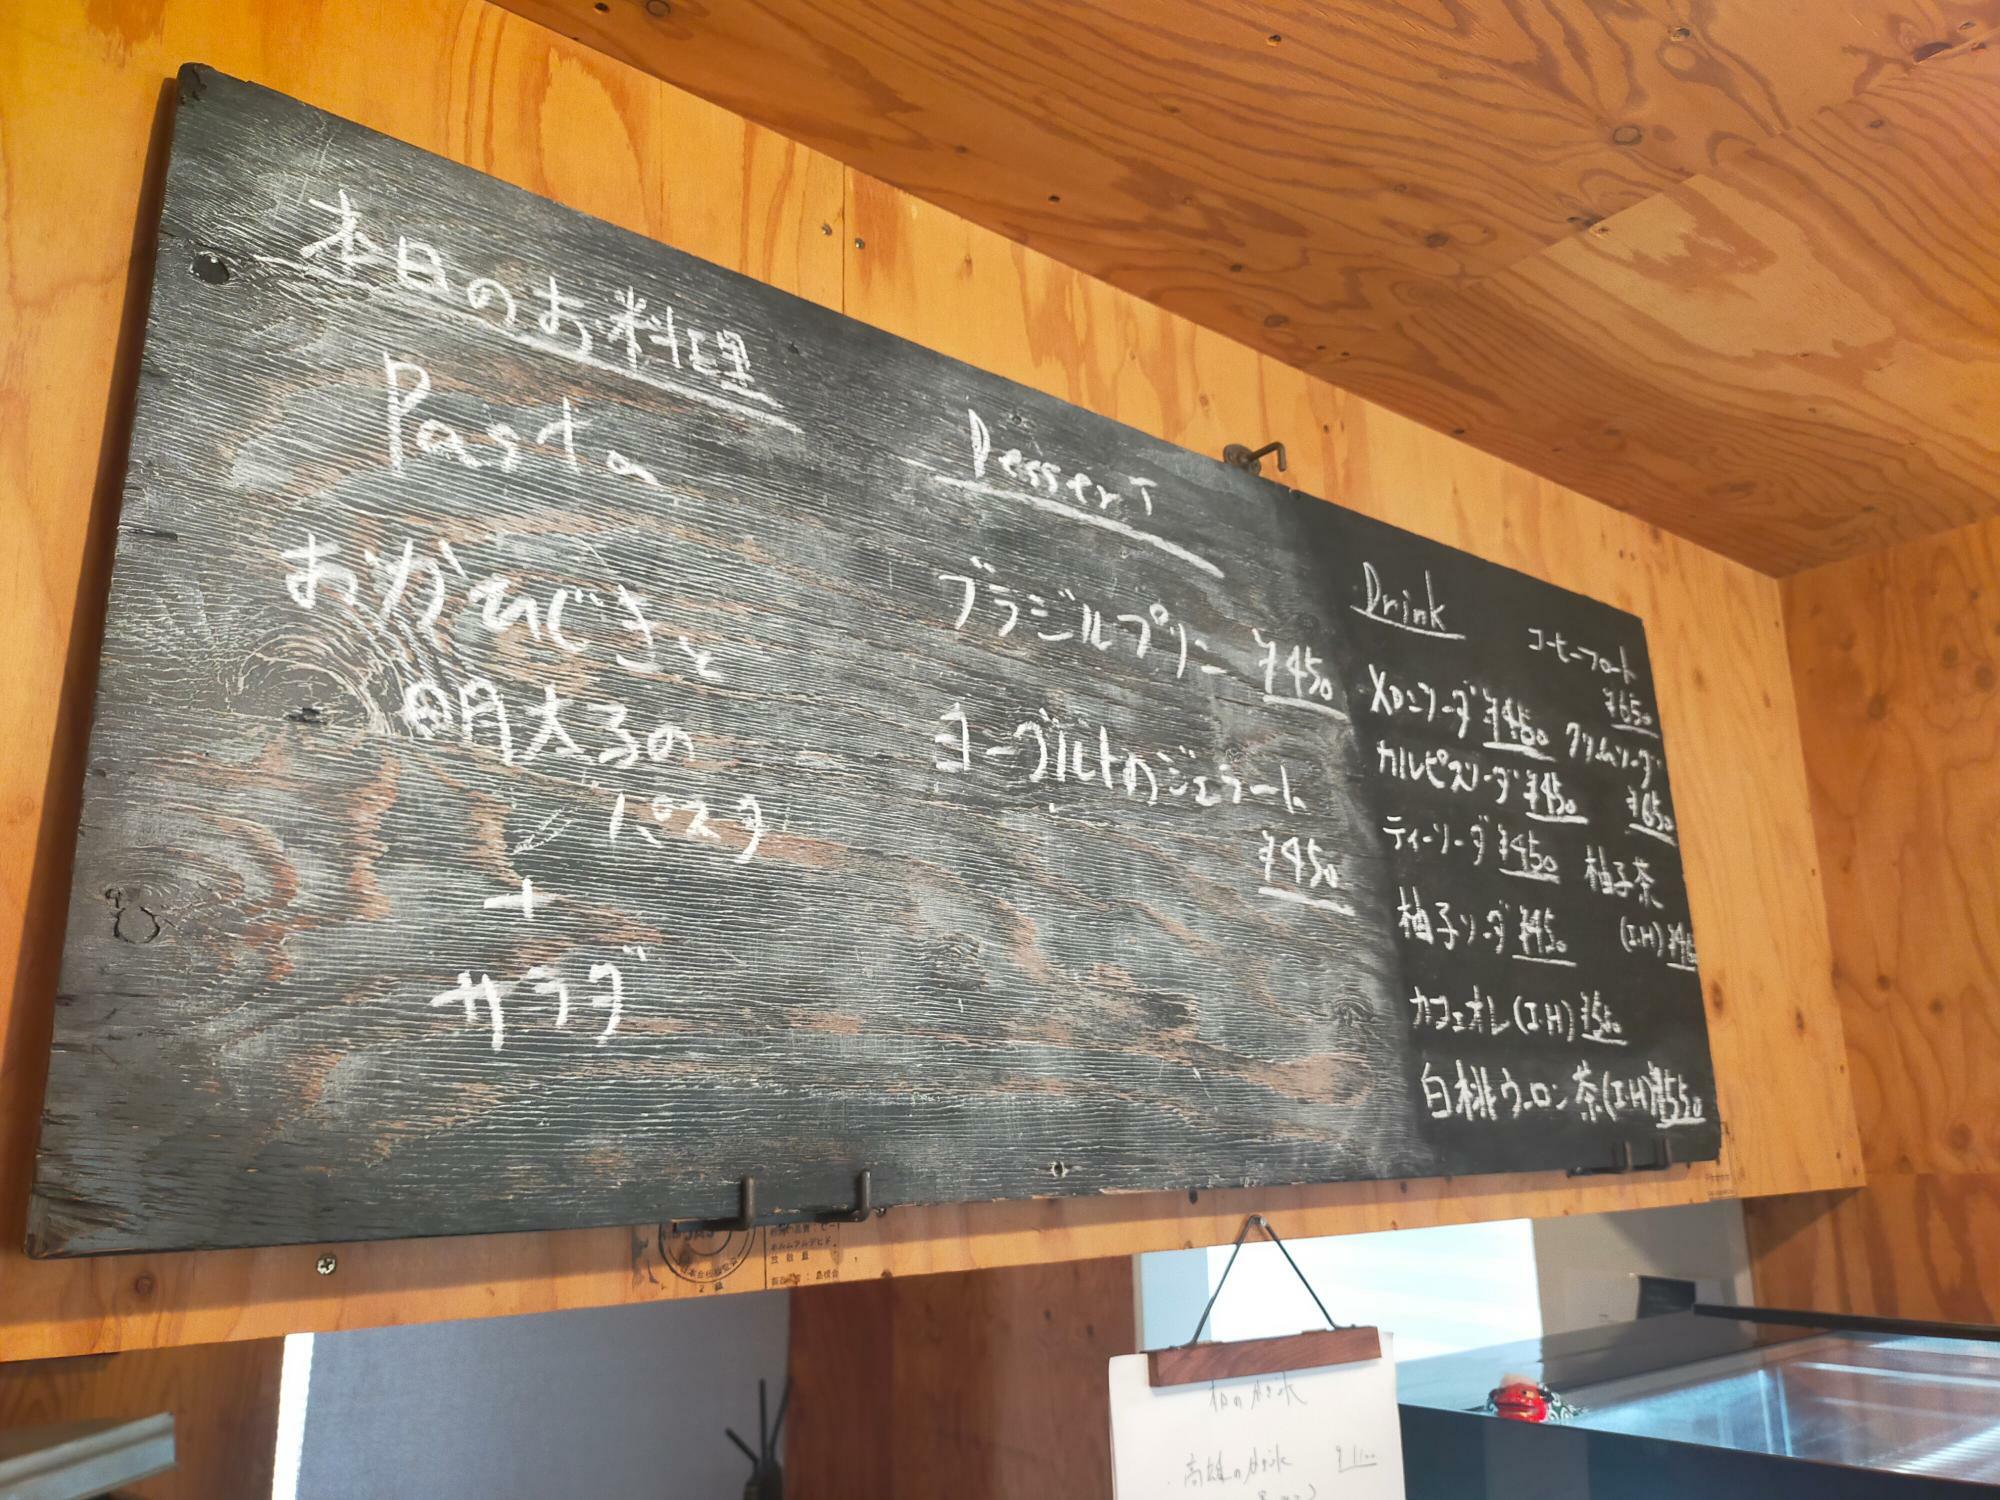 本日のお料理
Pasta
お冷ひじきと
明太子の
パスタ
+
サラダ
Dessert
ブラジルプリン ¥450
ヨーグルトのジェラート
¥450
Drink
メロンソーダ ¥450
カルピスソーダ ¥450
ティーソーダ ¥450
柚子ソーダ ¥450
カフェオレ(I・H) ¥550
白桃ウーロン茶(I・H) ¥550
コーヒーフロート
¥650
クリームソーダ
¥650
柚子茶
(I・H)
本日のかき氷